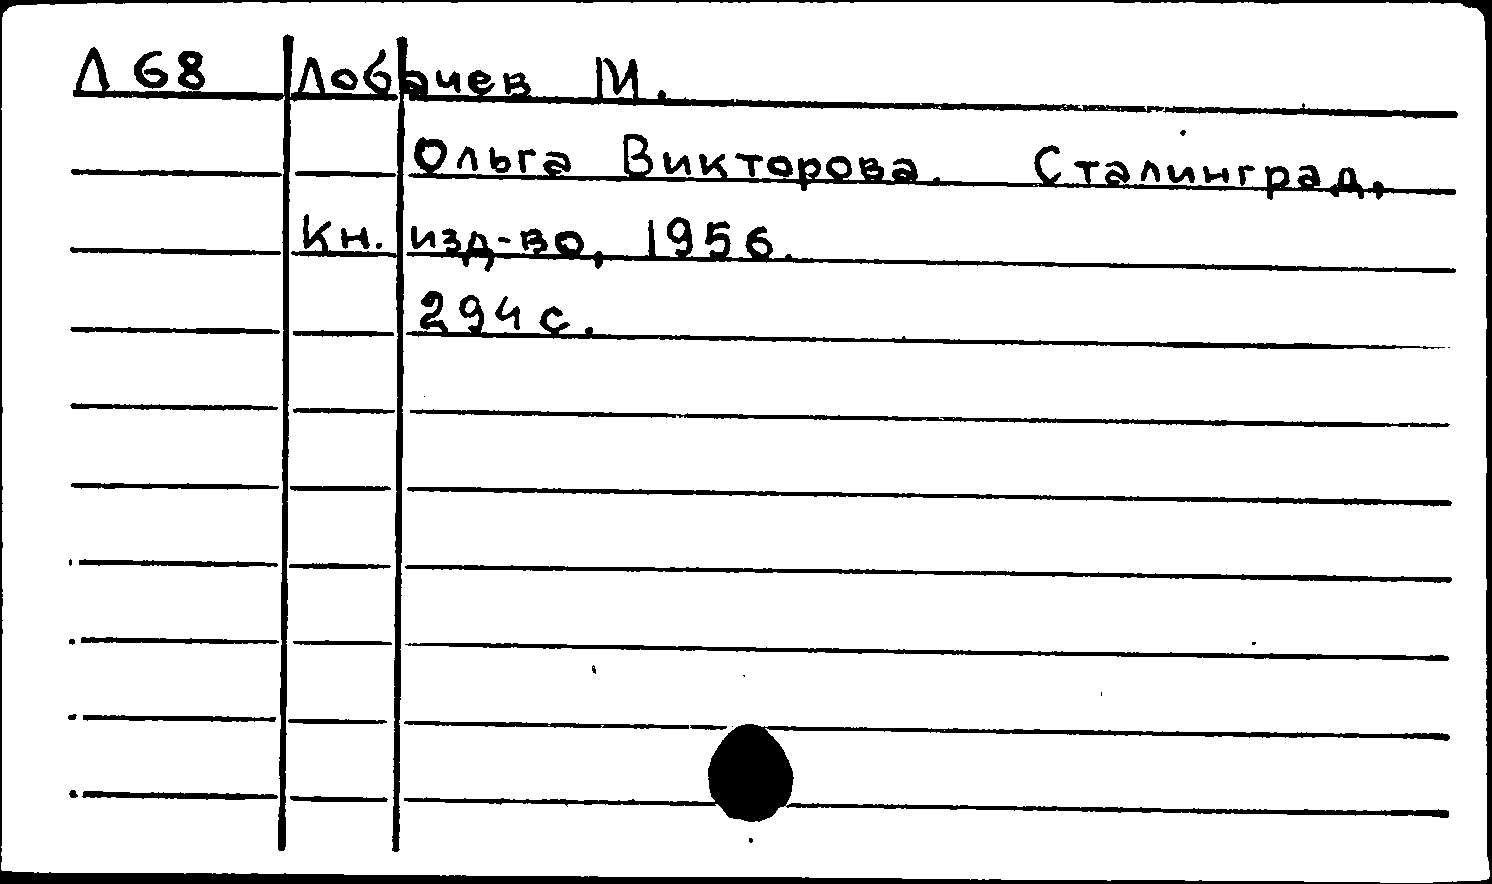 Л 68 Лобачев М.
Ольга Викторова. Сталинград,
Кн. изд-во, 1956.
294 с.